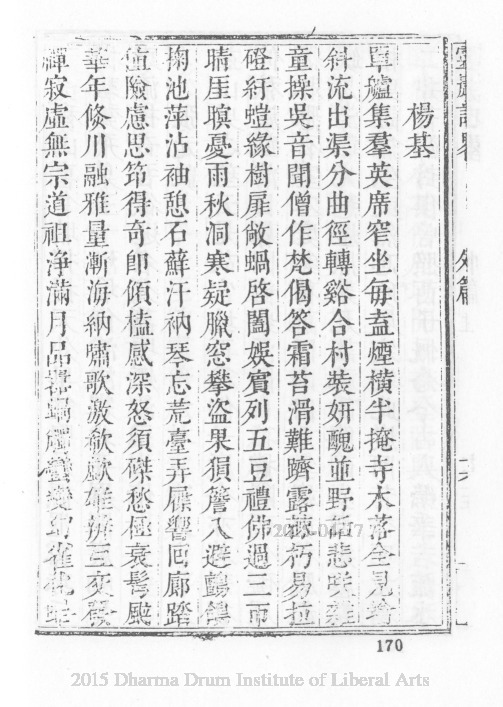 外篇
楊基
單艫集羣英席窄坐每盍煙橫半掩寺木落全見塔
斜流出渠分曲徑轉谿合村裝妍醜並野
童操吳音聞僧作梵偈答霜苔滑難躋露朽易拉
磴紆螘緣樹扉敞蝸啓闔娛賓列五豆禮佛過三帀
晴厓暝憂雨秋洞寒疑臘窓攀盜果猿簷入避鸇鴿
掬池萍沾袖憩石蘚汗衲琴忘荒臺弄屧響囘廊踏
值險慮思笻得奇卽傾榼感深怒須磔愁極衰髩颯
華年倐川融雅量漸海納嘯歌激歛雄辨互交
禪寂虛無宗道祖淨滿月品蝸蠻變幻雀化
170
2015 Dharma Drum Institute of Liberal Arts